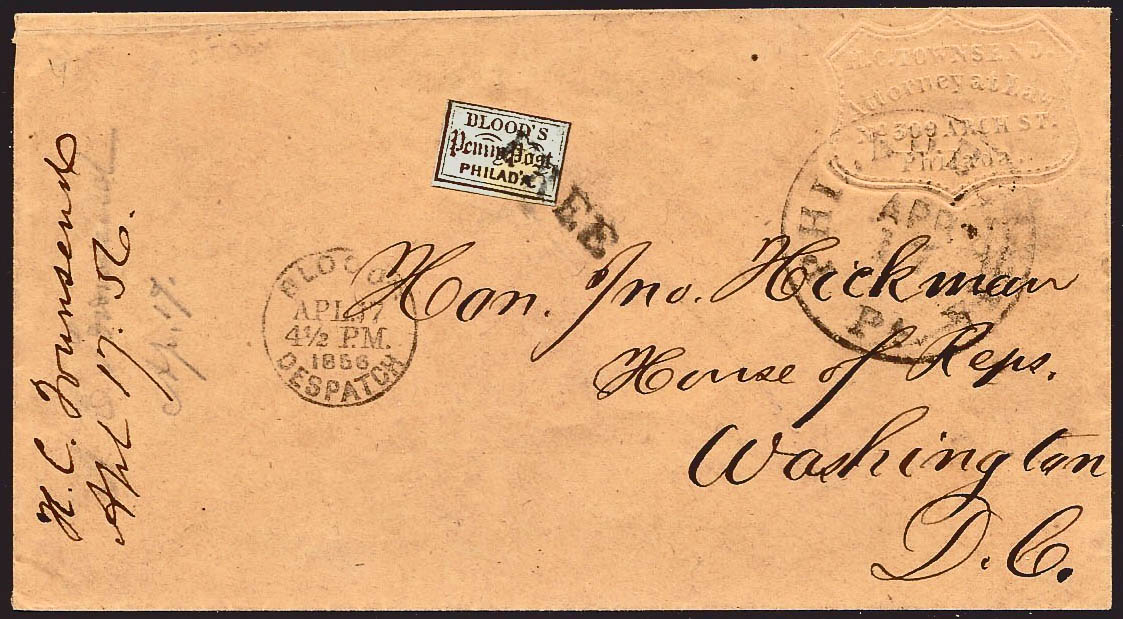 H.C. TOWNSEND,
Attorney at Law
No 399 ARCH ST.
Philada.
BLOOD'S
Penny Post
PHILAD'A
FREE
PHILADA
APR
17
PA.
BLOOD'S
APL.17
4½ P.M.
1856
DESPATCH
Hon. Jno. Hickman
House of Reps.
Washington
D.C.
H. C. Townsend
Apl 17. 56.
Ap. 17.